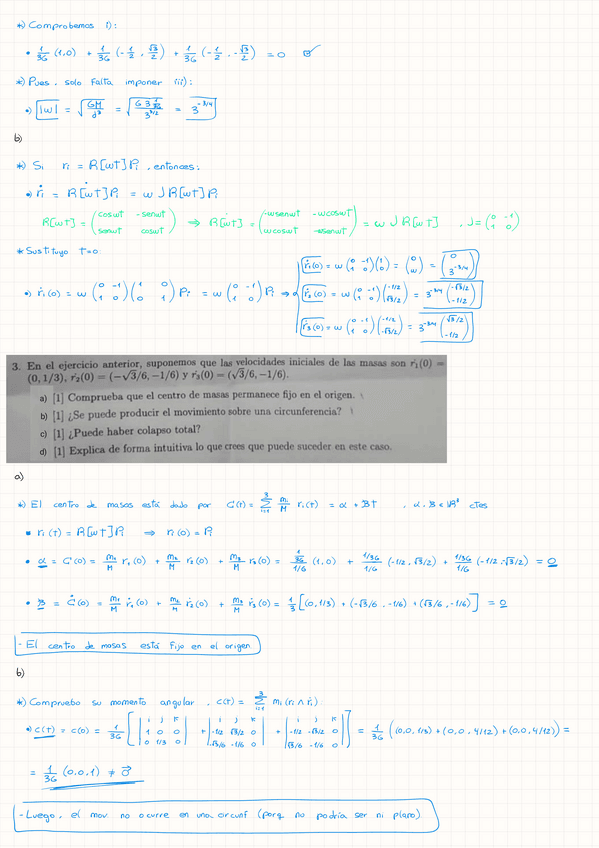 *) Comprobemos i):
• 1/36 (1,0) + 1/36 (-1/2, √3/2) + 1/36 (-1/2, -√3/2) = 0
*) Pues, solo falta imponer iii):
•) |w| = √(GM/d³) = = 3^(-3/4)
b)
*) Si ri = R[wt]Pi, entonces:
•) ṙi = Ṙ[wt]Pi = w J R[wt]Pi
R[wt] = (coswt -senwt / senwt coswt) ⇒ Ṙ[wt] = (-wsenwt -wcoswt / wcoswt -wsenwt) = w J R[wt], J = (0 -1 / 1 0)
* Sustituyo t=0.
•) ṙi(0) = w (0 -1 / 1 0) (1 0 / 0 1) Pi = w (0 -1 / 1 0) Pi ⇒
ṙ1(0) = w (0 -1 / 1 0) (1 / 0) = (0 / w) = (0 / 3^(-3/4))
ṙ2(0) = w (0 -1 / 1 0) (-1/2 / √3/2) = 3^(-3/4) (-√3/2 / -1/2)
ṙ3(0) = w (0 -1 / 1 0) (-1/2 / -√3/2) = 3^(-3/4) (√3/2 / -1/2)
3. En el ejercicio anterior, suponemos que las velocidades iniciales de las masas son ṙ1(0) =
(0, 1/3), ṙ2(0) = (−√3/6, −1/6) y ṙ3(0) = (√3/6, −1/6).
a) [1] Comprueba que el centro de masas permanece fijo en el origen.
b) [1] ¿Se puede producir el movimiento sobre una circunferencia?
c) [1] ¿Puede haber colapso total?
d) [1] Explica de forma intuitiva lo que crees que puede suceder en este caso.
a)
*) El centro de masas está dado por C(t) = Σ(i=1..3) mi/M ri(t) = α + βt, α, β ∈ ctes
▪ ri(t) = R[wt]Pi ⇒ ri(0) = Pi
• α = C(0) = m1/M r1(0) + m2/M r2(0) + m3/M r3(0) = (1/36)/(1/6) (1,0) + (1/36)/(1/6) (-1/2, √3/2) + (1/36)/(1/6) (-1/2, -√3/2) = 0
• β = Ċ(0) = m1/M ṙ1(0) + m2/M ṙ2(0) + m3/M ṙ3(0) = 1/3 [(0,1/3) + (-√3/6, -1/6) + (√3/6, -1/6)] = 0
- El centro de masas está fijo en el origen
b)
*) Compruebo su momento angular, c(t) = Σ(i=1..3) mi (ri ∧ ṙi)
•) c(t) = c(0) = 1/36 [|i j k / 1 0 0 / 0 1/3 0| + |i j k / -1/2 √3/2 0 / -√3/6 -1/6 0| + |i j k / -1/2 -√3/2 0 / √3/6 -1/6 0|] = 1/36 ((0,0,1/3) + (0,0,4/12) + (0,0,4/12)) =
= 1/36 (0,0,1) ≠ 0⃗
- Luego, el mov. no ocurre en una circunf (porq no podría ser ni plano)